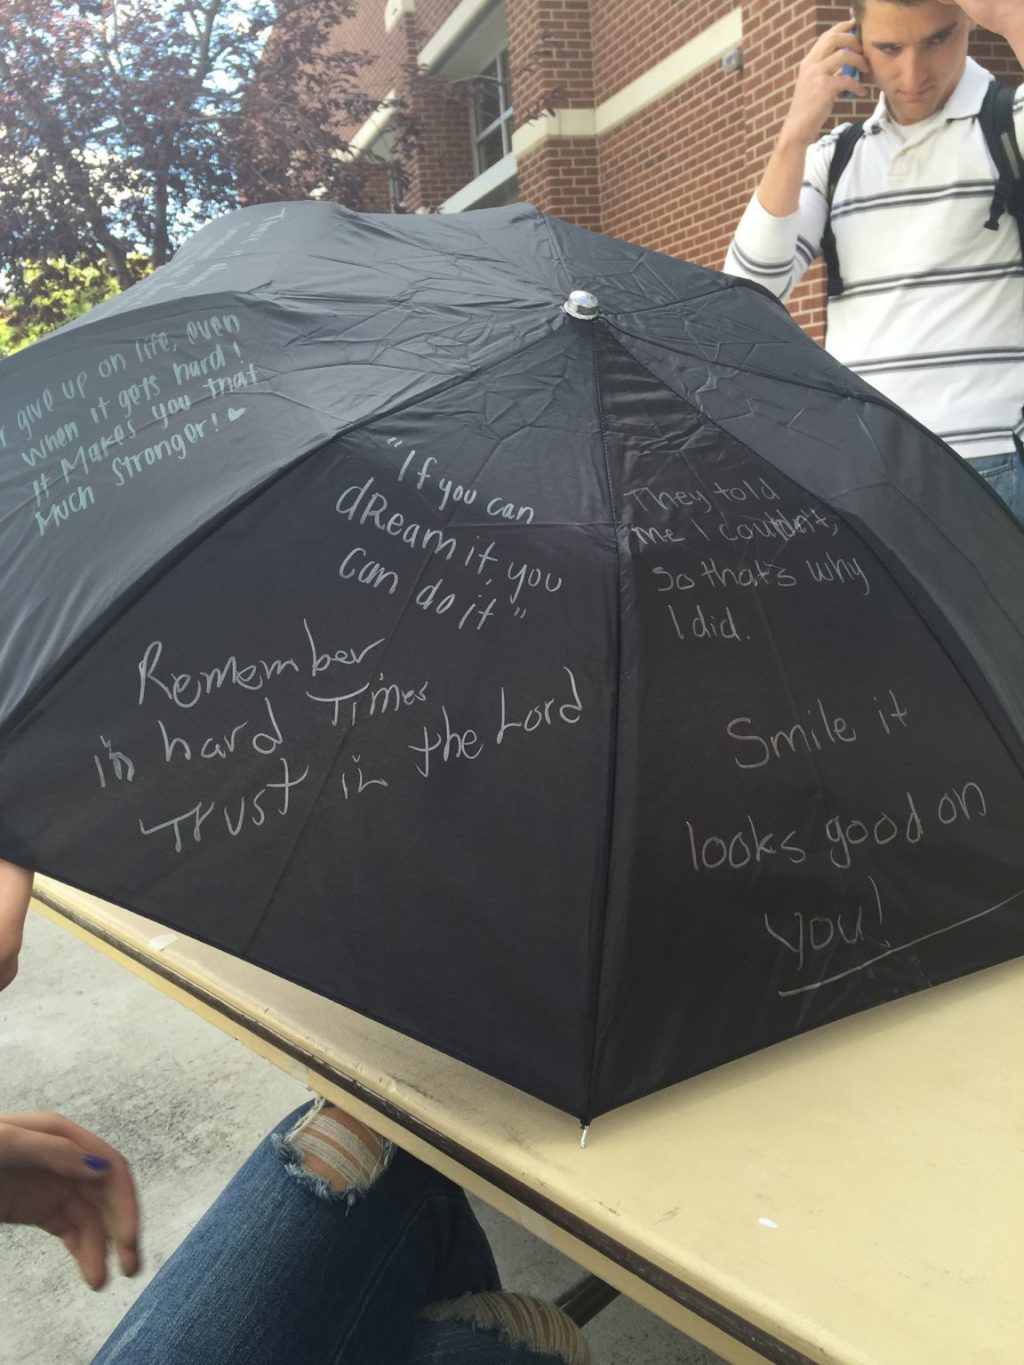 give up on life, even
when it gets hard!
It Makes you that
Much Stronger! ♥
"If you can
dream it, you
can do it"
Remember
in hard Times
Trust in the Lord
They told
me I couldn't,
So that's why
I did.
Smile it
looks good on
you!